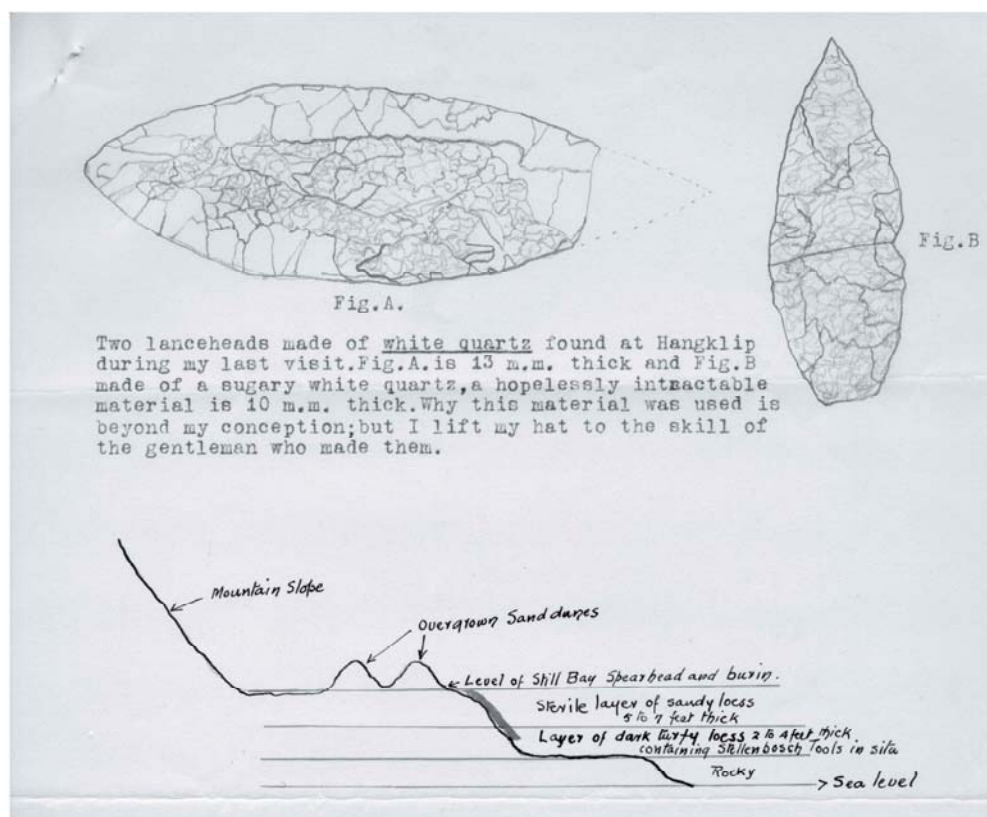 Fig.B
Fig.A.
Two lanceheads made of white quartz found at Hangklip
during my last visit.Fig.A.is 13 m.m. thick and Fig.B
made of a sugary white quartz,a hopelessly intractable
material is 10 m.m. thick.Why this material was used is
beyond my conception;but I lift my hat to the skill of
the gentleman who made them.
Mountain Slope
Overgrown Sand dunes
Level of Still Bay Spearhead and burin.
Sterile layer of sandy loess
5 to 7 feet thick
Layer of dark turfy loess 2 to 4 feet thick.
containing Stellenbosch Tools in situ
Rocky
Sea level